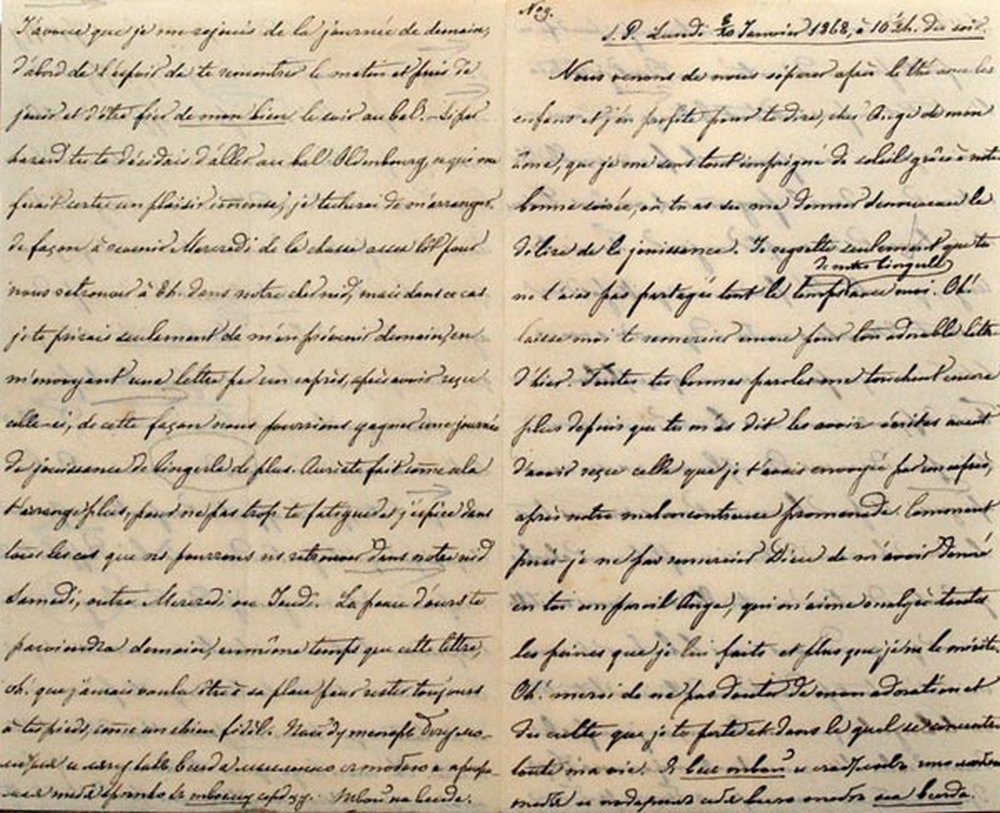 No 3.
S. P. Lundi 8/20 Janvier 1868, à 10 ½ h. du soir.
Nous venons de nous séparer après le thé avec les
enfans et j'en profite pour te dire, cher Ange de mon
âme, que je me sens tout impregné de soleil grâce à notre
bonne soirée, où tu as su me donner de nouveau le
délire de la jouissance. Je regrette seulement que tu
de notre bingerle
ne l'aies pas partagée tout le temps avec moi. Oh!
laisse moi te remercier encore pour ton adorable lettre
d'hier. Toutes tes bonnes paroles me touchent encore
plus depuis que tu m'as dit les avoir écrites avant
d'avoir reçue celle que je t'avais envoyée par un exprès,
après notre malencontreuse promenade. Comment
puis-je ne pas remercier Dieu de m'avoir donné
en toi un pareil Ange, qui m'aime malgré toutes
les peines que je lui faits et plus que je ne le mérite.
Oh! merci de ne pas douter de mon adoration et
du culte que je te porte et dans le quel se concentre
toute ma vie. Я весь твой и
на всегда.
J'avoue que je me rejouis de la journée de demain,
d'abord de l'espoir de te rencontrer le matin et puis de
jouir et d'être fier de mon bien le soir au bal. – Si par
hazard tu te décidais d'aller au bal Oldenbourg, ce qui me
ferait certes un plaisir immense, je tacherai de m'arranger
de façon à revenir Mercredi de la chasse assez tôt pour
nous retrouver à 8h. dans notre cher nid, mais dans ce cas
je te prierais seulement de m'en prévenir demain, en
m'envoyant une lettre par un exprès, après avoir reçue
celle-ci, de cette façon nous pourrions gagner une journée
de jouissance de bingerle de plus. Aureste fait come cela
t'arrange plus, pour ne pas trop te fatiguer et j'espère dans
tous les cas que ns pourrons ns retrouver dans notre nid
Samedi, outre Mercredi ou Jeudi. La peau d'ours te
parviendra demain, en même temps que cette lettre,
oh! que j'aurais voulu être à sa place pour rester toujours
à tes pieds, come un chien fidèl.
Твой на всегда.